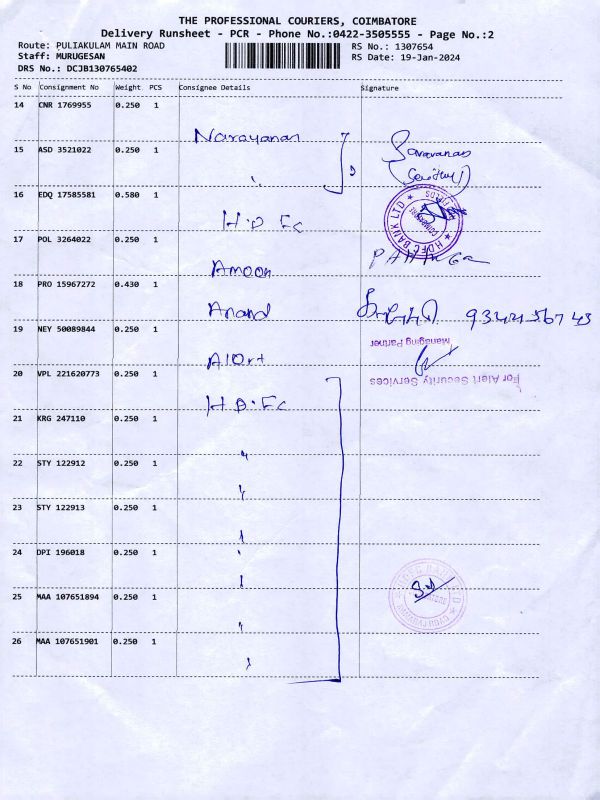 THE PROFESSIONAL COURIERS, COIMBATORE
Delivery Runsheet - PCR - Phone No.:0422-3505555 - Page No.:2
Route: PULIAKULAM MAIN ROAD RS No.: 1307654
Staff: MURUGESAN RS Date: 19-Jan-2024
DRS No.: DCJB130765402
S No Consignment No Weight PCS Consignee Details Signature
14 CNR 1769955 0.250 1
Narayanan
15 ASD 3521022 0.250 1 "
Saravanan
16 EDQ 17585581 0.580 1
H.D Fc
HDFC BANK LTD
17 POL 3264022 0.250 1
Amoon
18 PRO 15967272 0.430 1
Anand
19 NEY 50089844 0.250 1
Managing Partner
Alert
For Alert Security Services
20 VPL 221620773 0.250 1
H.D.Fc
21 KRG 247110 0.250 1
"
22 STY 122912 0.250 1
"
23 STY 122913 0.250 1
"
24 DPI 196018 0.250 1
"
25 MAA 107651894 0.250 1
"
26 MAA 107651901 0.250 1
"